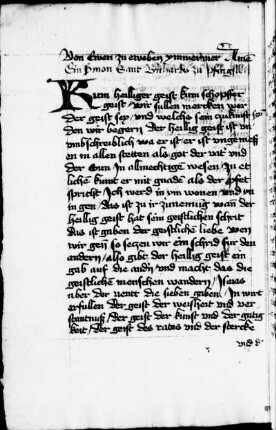 Von Ewen zu eweben ymmermer Ame
Ein Smon Sant Bnhardz zu Pfingst
Kum heilliger geist kum schopffer
geist / wir sullen mercken wer
der geist sey / vnd welchs sein zukunft sey
den wir begern / der heilig geist ist vn
vnbschreiblich wa er ist er ist vngemess
en in allen stetten als got der vat vnd
der Sun In allmechtigem wesen / zu et
lichen kumt er mit gnade als der Pfet
spricht / Ich werd in ym wonen vnd yn
in gen / das ist zu ir zunemung wan der
heilig geist hat sein geistlichen schrit
das ist gaben der geistliche liebe / wen
wir gen so seczen wir ein schrid fur den
andern / also gibt der heilig geist ein
gab auf die andn vnd macht das die
geistliche menschen wandern / Isaias
aber der nent die siben gaben / In wirt
erfullen der geist der weisheit vnd ver
stantnuß / der geist der kunst vnd der gutig
keit / der geist des rates vnd der stercke
vnd d